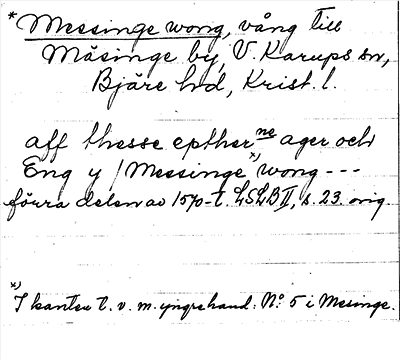 * Messinge wong, vång till
Mäsinge by, V. Karups sn,
Bjäre hd, Krist. l.
aff thesse epther ne ager och
Eng y / Messinge *) wong ---
förra delen av 1570-t. LSLB II, s. 23. orig.
*) I kanten t. v. m. yngre hand: No 5 i Mesinge.